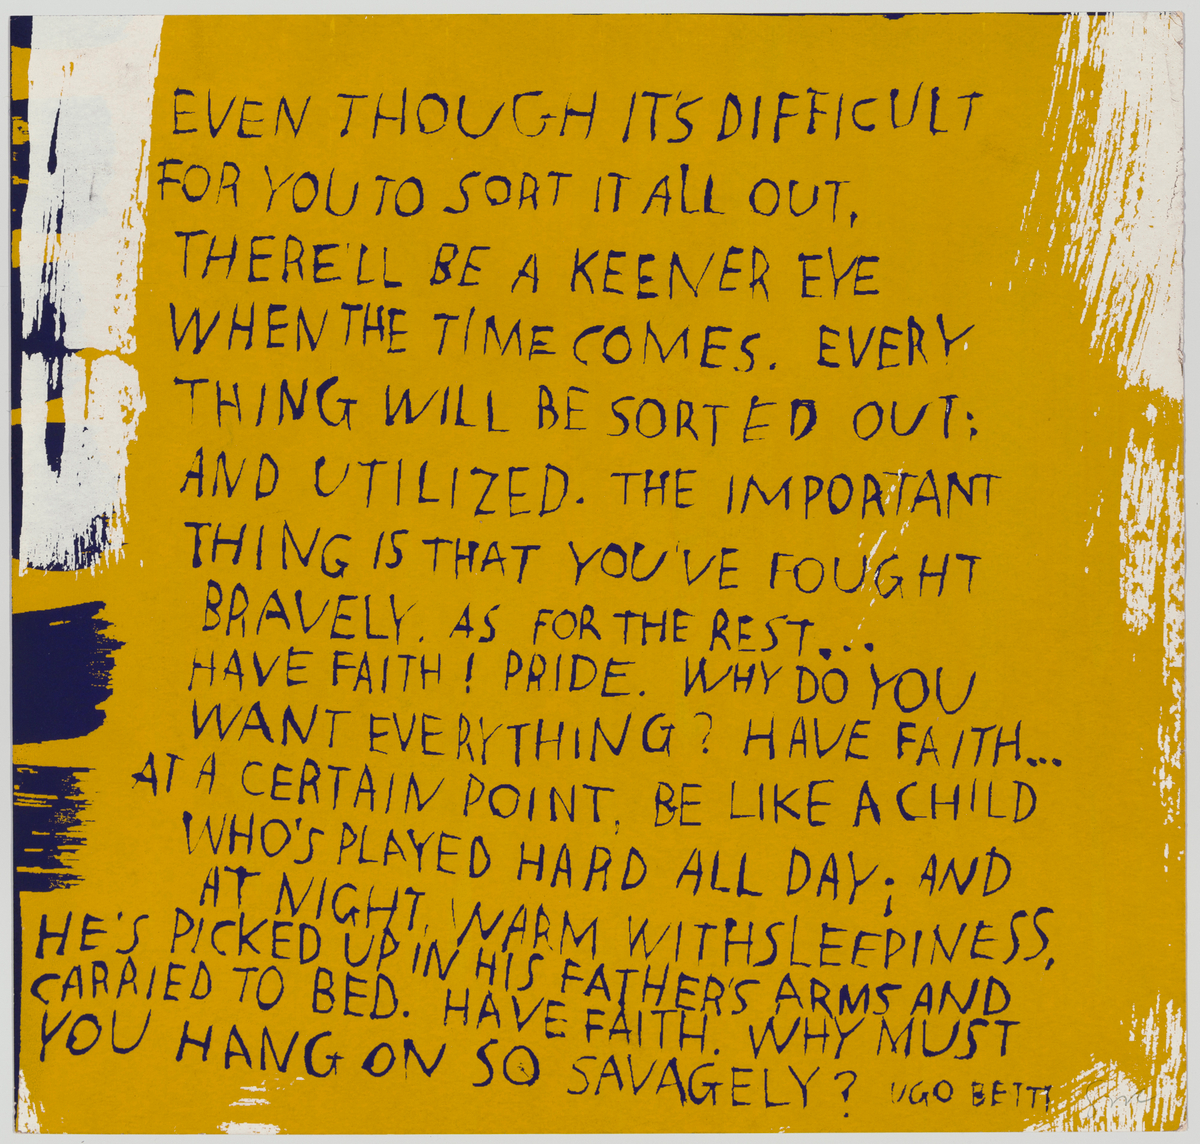 EVEN THOUGH IT'S DIFFICULT
FOR YOU TO SORT IT ALL OUT,
THERE'LL BE A KEENER EYE
WHEN THE TIME COMES. EVERY
THING WILL BE SORTED OUT;
AND UTILIZED. THE IMPORTANT
THING IS THAT YOU'VE FOUGHT
BRAVELY. AS FOR THE REST...
HAVE FAITH! PRIDE. WHY DO YOU
WANT EVERYTHING? HAVE FAITH...
AT A CERTAIN POINT, BE LIKE A CHILD
WHO'S PLAYED HARD ALL DAY; AND
AT NIGHT, WARM WITH SLEEPINESS,
HE'S PICKED UP IN HIS FATHER'S ARMS AND
CARRIED TO BED. HAVE FAITH. WHY MUST
YOU HANG ON SO SAVAGELY? UGO BETTI